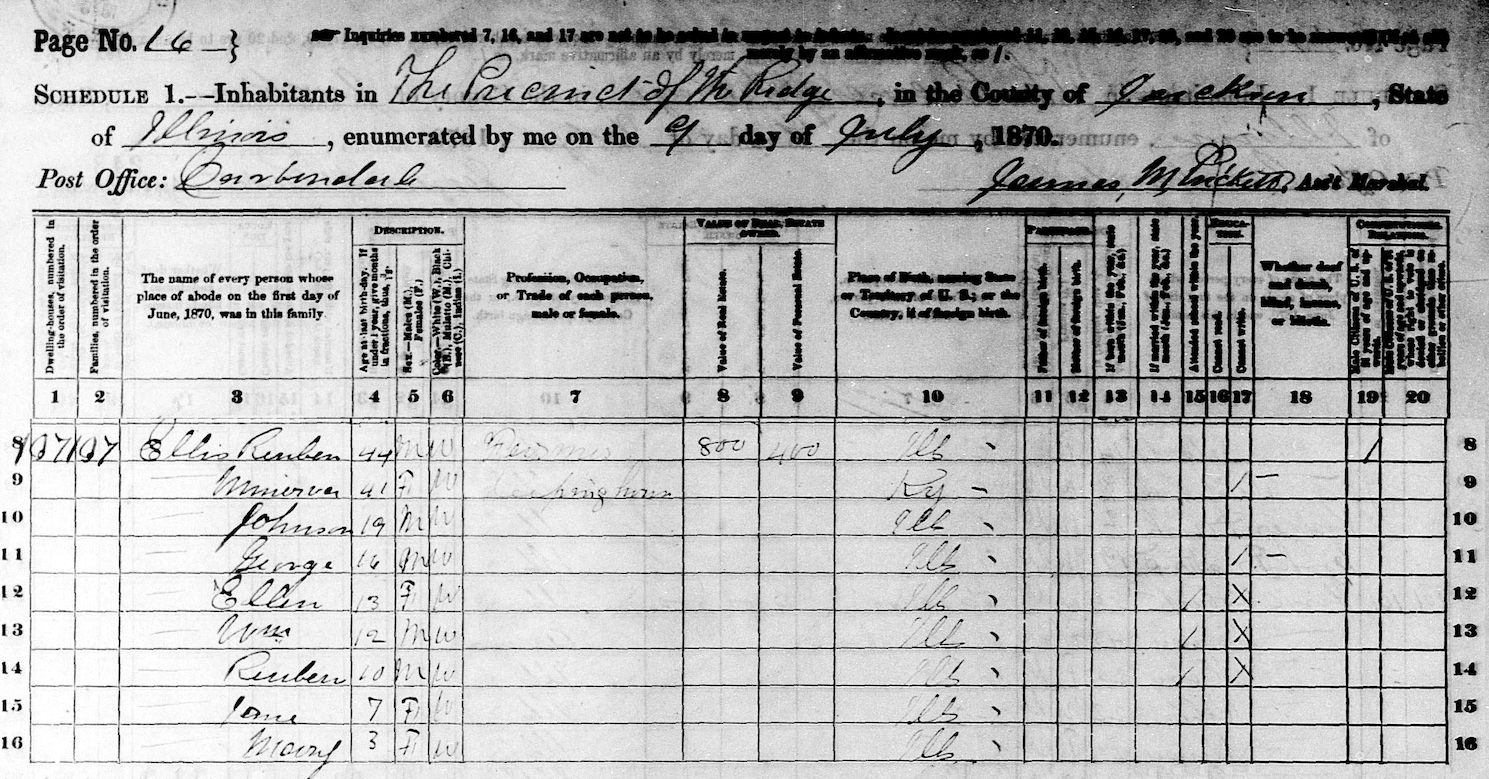 Page No. 16 }
Inquiries numbered 7, 16, and 17 are not to be asked in respect to infants.
merely by an affirmative mark, as /.
SCHEDULE 1.--Inhabitants in The Precinct of the Ridge, in the County of Jackson, State
of Illinois, enumerated by me on the 9 day of July, 1870.
Post Office: Carbondale
James M Pickett, Ass't Marshal.
Dwelling-houses, numbered in the order of visitation.
Families, numbered in the order of visitation.
The name of every person whose place of abode on the first day of June, 1870, was in this family.
DESCRIPTION.
Age at last birth-day. If under 1 year, give months in fractions, thus,
Sex.—Males (M.), Females (F.)
Color.—White (W.), Black (B.), Mulatto (M.), Chinese (C.), Indian (I.)
Profession, Occupation, or Trade of each person, male or female.
VALUE OF REAL ESTATE OWNED.
Value of Real Estate.
Value of Personal Estate.
Place of Birth, naming State or Territory of U. S.; or the Country, if of foreign birth.
PARENTAGE.
Father of foreign birth.
Mother of foreign birth.
If born within the year, state month (Jan., Feb., &c.)
If married within the year, state month (Jan., Feb., &c.)
Attended school within the year.
EDUCATION.
Cannot read.
Cannot write.
Whether deaf and dumb, blind, insane, or idiotic.
CONSTITUTIONAL RELATIONS.
Male Citizens of U. S. of 21 years of age and upwards.
1 2 3 4 5 6 7 8 9 10 11 12 13 14 15 16 17 18 19 20
8 137 137 Ellis Reuben 44 M W Farmer 800 400 Ills 1 8
9 Minerva 41 F W Keeping house Ky / 9
10 Johnson 19 M W Ills 10
11 George 16 M W Ills 1 11
12 Ellen 13 F W Ills / X 12
13 Wm 12 M W Ills / X 13
14 Reuben 10 M W Ills / X 14
15 7 F W Ills 15
16 Mary 3 F W Ills 16